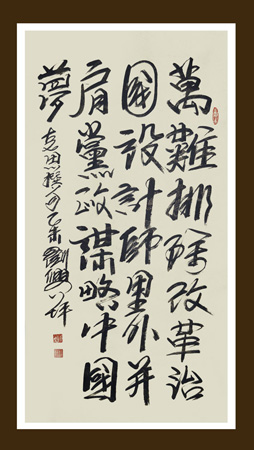 萬難排除改革治
國設計師里外并
肩黨政謀略中國
夢